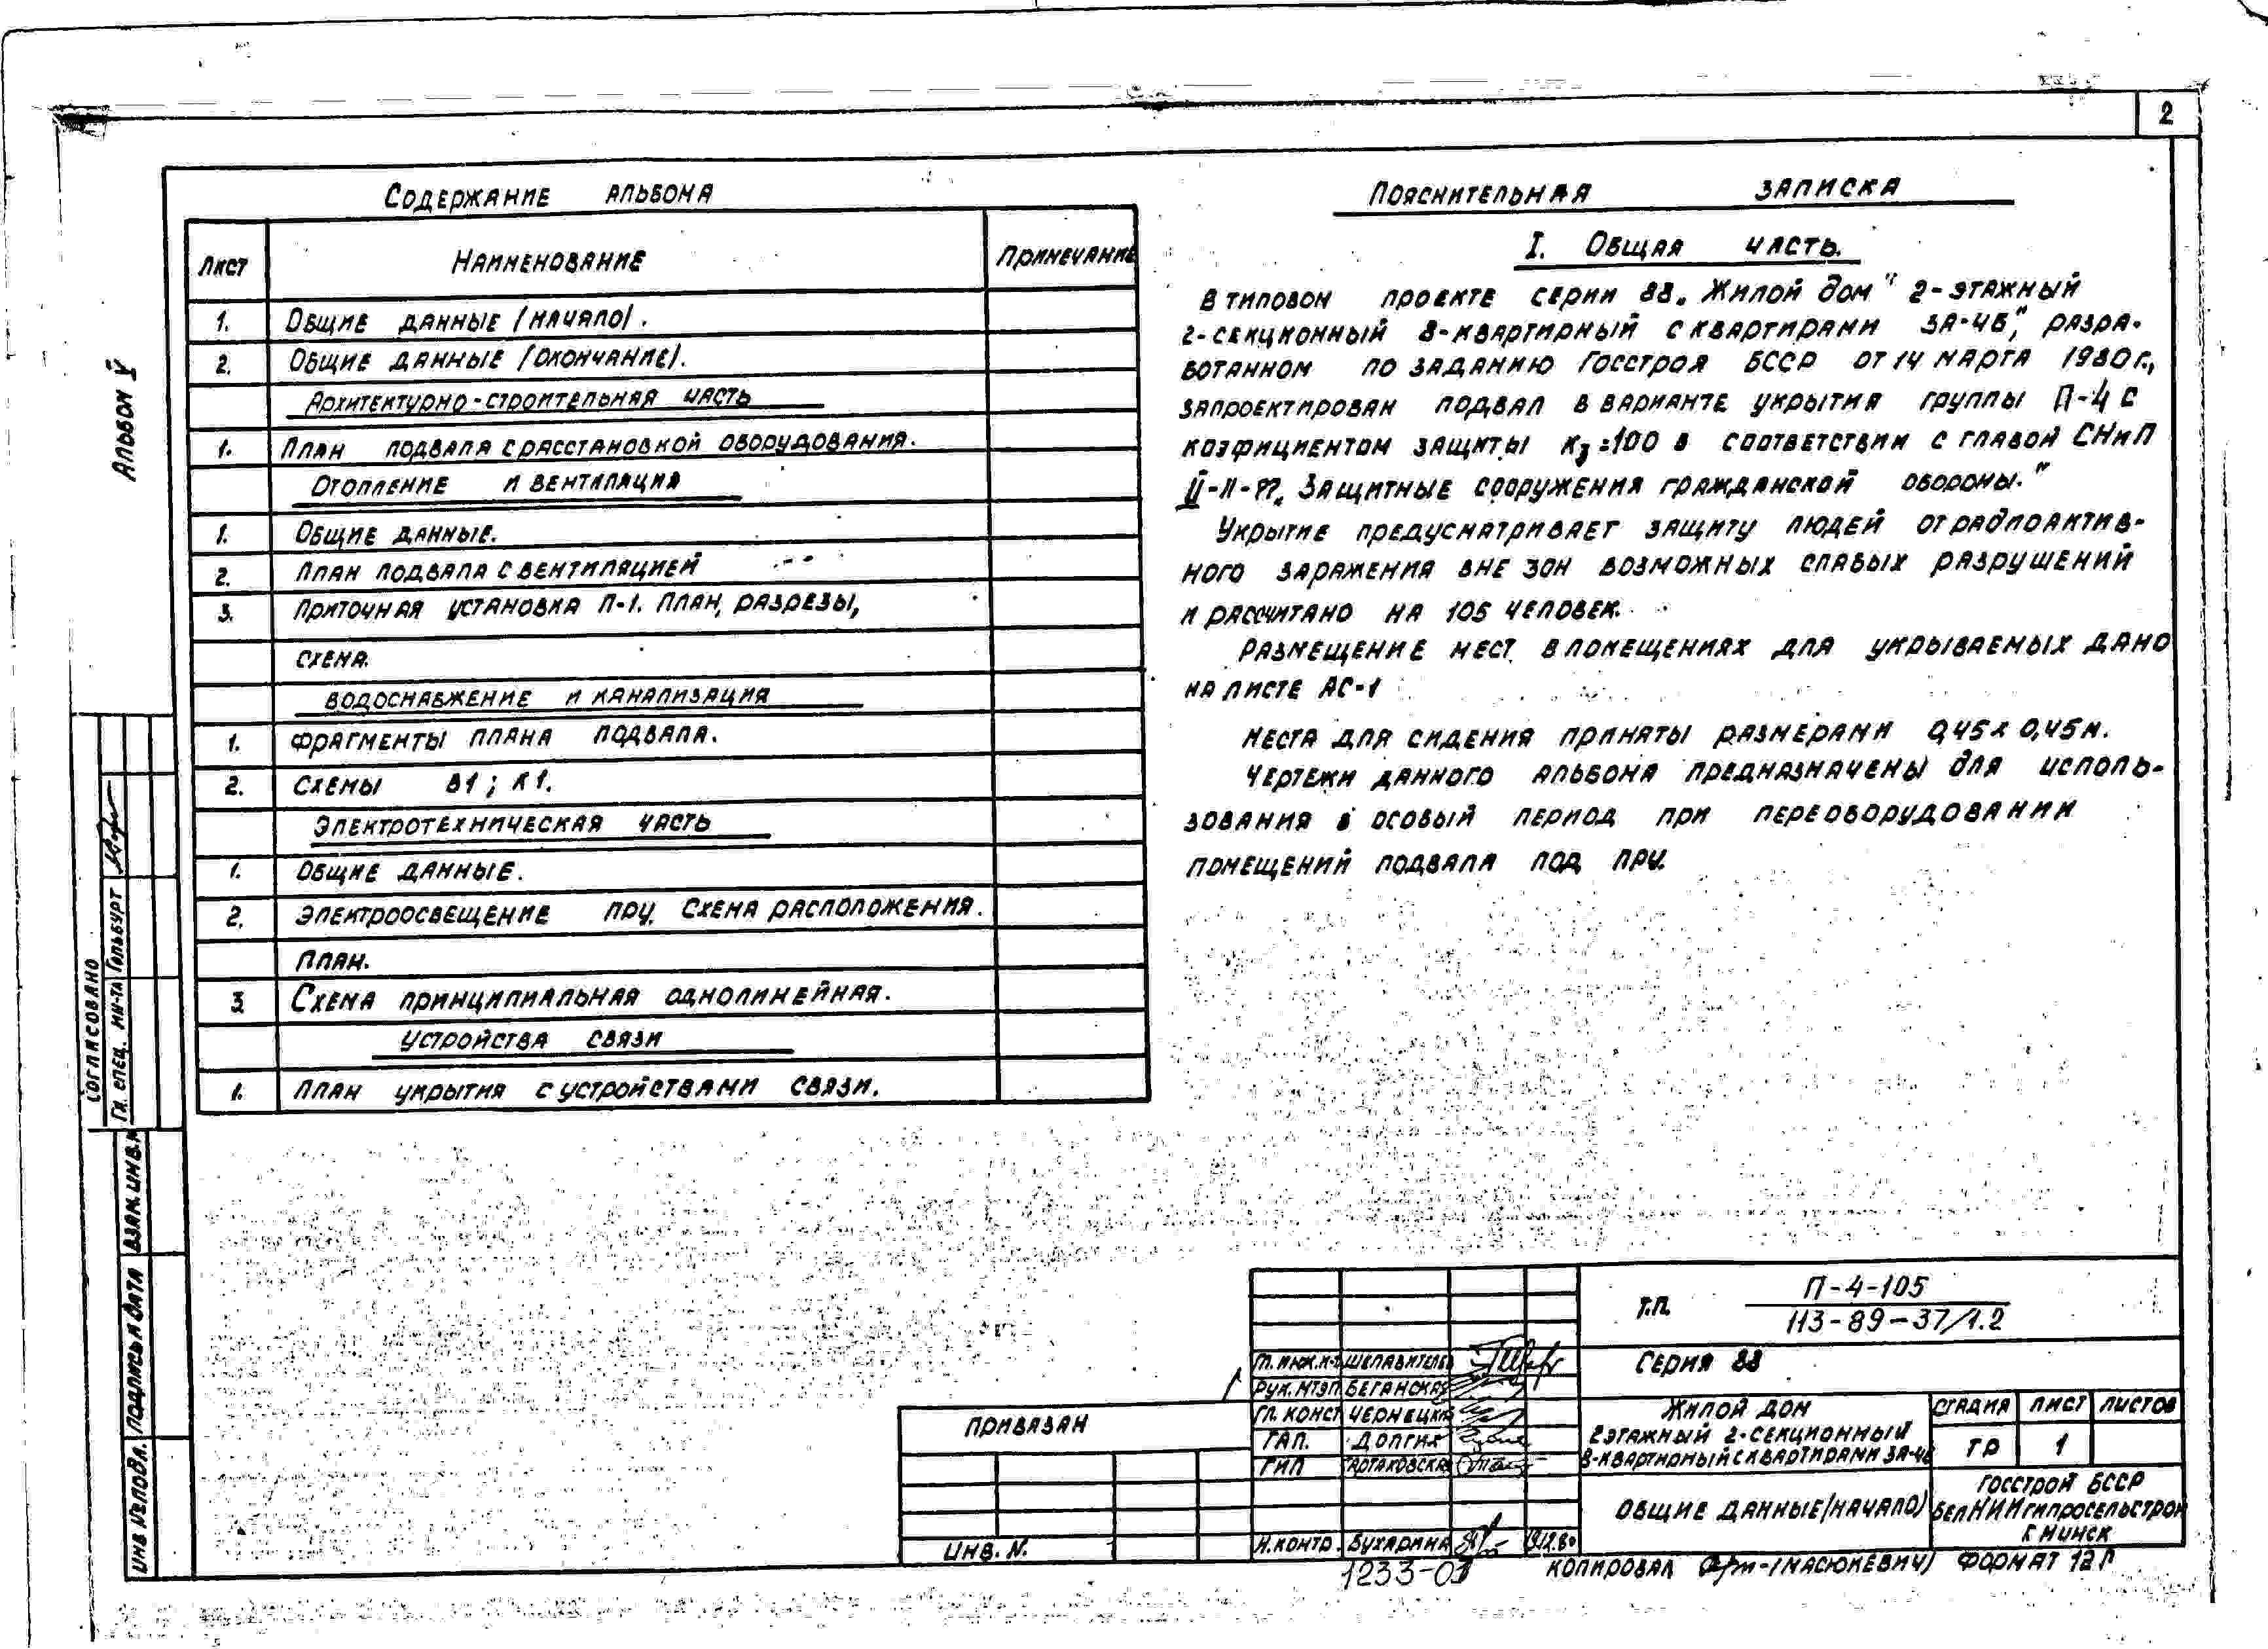 2
Альбом V
Содержание альбома
Лист Наименование Примечание
1. Общие данные /начало/.
2. Общие данные /окончание/.
Архитектурно-строительная часть
1. План подвала с расстановкой оборудования.
Отопление и вентиляция
1. Общие данные.
2. План подвала с вентиляцией
3. Приточная установка П-1. План, разрезы,
схема.
Водоснабжение и канализация
1. Фрагменты плана подвала.
2. Схемы В1; К1.
Электротехническая часть
1. Общие данные.
2. Электроосвещение ПРУ. Схема расположения.
План.
3 Схема принципиальная однолинейная.
Устройства связи
1. План укрытия с устройствами связи.
Пояснительная записка
I. Общая часть.
В типовом проекте серии 88 „Жилой дом" 2-этажный
2-секционный 8-квартирный с квартирами 3А-4Б", разра-
ботанном по заданию Госстроя БССР от 14 марта 1980 г.,
запроектирован подвал в варианте укрытия группы П-4 с
коэфициентом защиты Кз=100 в соответствии с главой СНиП
II-11-77 „Защитные сооружения гражданской обороны."
Укрытие предусматривает защиту людей от радиоактив-
ного заражения вне зон возможных слабых разрушений
и рассчитано на 105 человек.
Размещение мест в помещениях для укрываемых дано
на листе АС-1
Места для сидения приняты размерами 0,45 х 0,45 м.
Чертежи данного альбома предназначены для исполь-
зования в особый период при переоборудовании
помещений подвала под ПРУ.
Согласовано
Гл. спец. ин-та Гольбурт
Взам. инв. N
Подпись и дата
Инв. № подл.
Привязан
Инв. N.
Гл. инж. ин-та Шепавителев
Рук. МТЭП Беганская
Гл. конст Чернецкий
ГАП. Долгих
ГИП Тартаковская
Н. контр. Бухарина
Т.П. П-4-105
113-89-37/1.2
Серия 88
Жилой дом
2 этажный 2-секционный
8-квартирный с квартирами 3А-4Б
Стадия Лист Листов
ТР 1
Общие данные /начало/
Госстрой БССР
БелНИИгипросельстрой
г. Минск
1233-03
Копировал (Масюкевич) Формат 12Г